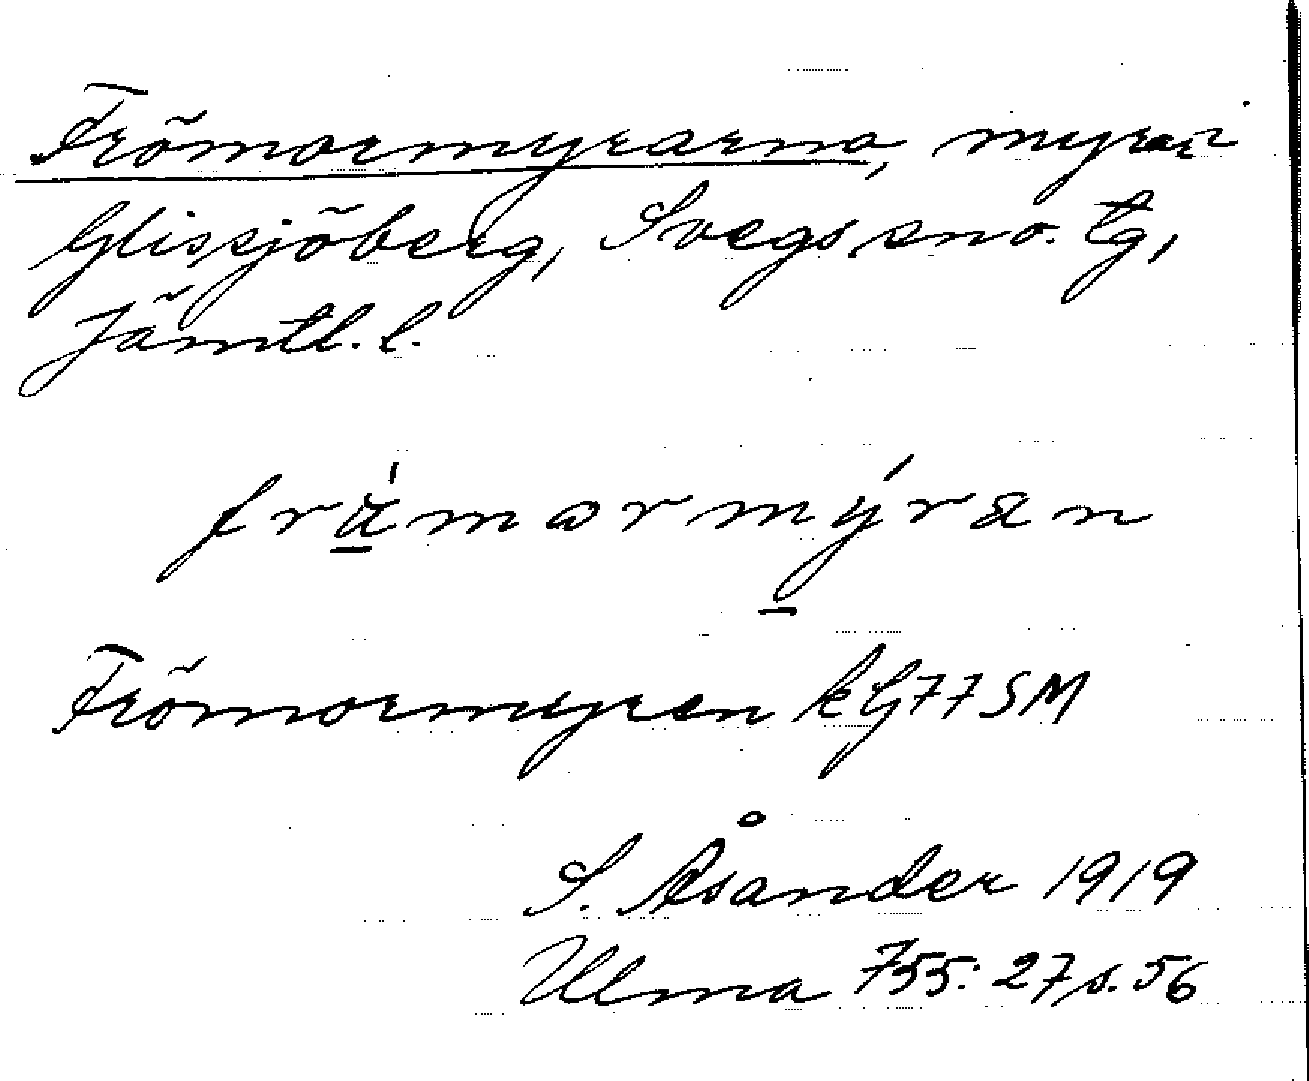 Frömormyrarna, myrar
Glissjöberg, Svegs sn o. tg,
Jämtl. l.
frä́mormýran
Frömormyren kG77SM
S. Åsander 1919
Ulma 755: 27 s. 56